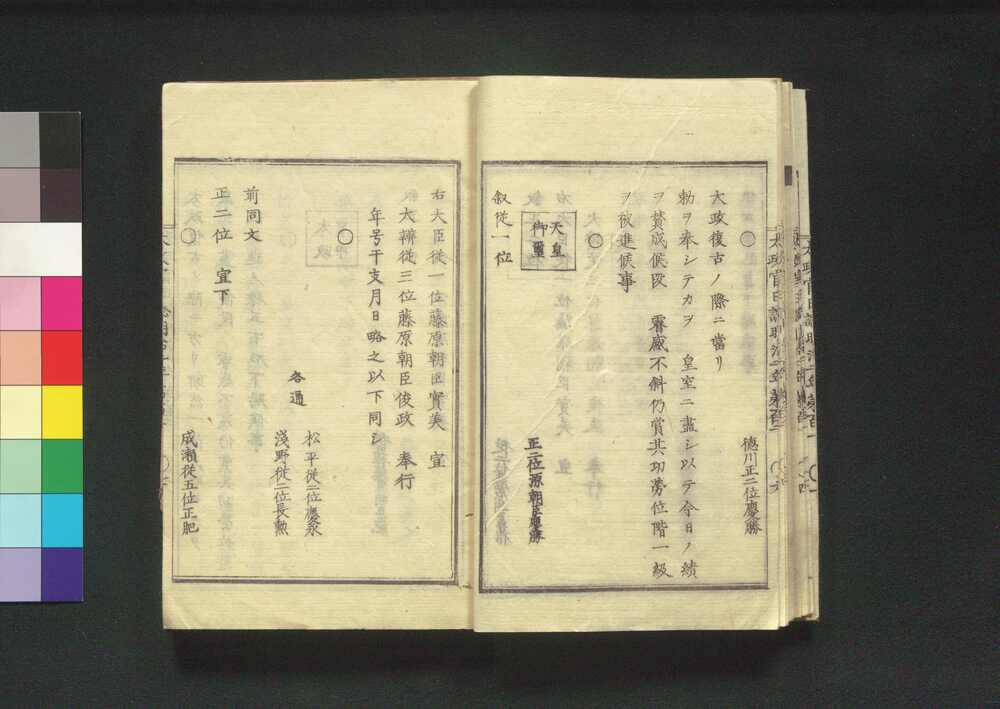 ○
徳川正二位慶勝
大政復古ノ際ニ當リ
勅ヲ奉シテカヲ　皇室ニ盡シ以テ今日ノ績
ヲ賛成候段　睿感不斜仍賞其功勞位階一級
ヲ被進候事
○
正二位源朝臣慶勝
天皇
御璽
叙従一位
右大臣従一位藤原朝臣實美　宣
大辨従三位藤原朝臣俊政　奉行
年号干支月日略之以下同シ
○
松平従二位慶永
各通
淺野従二位長勲
前同文
正二位　宣下
○
成瀬従五位正肥